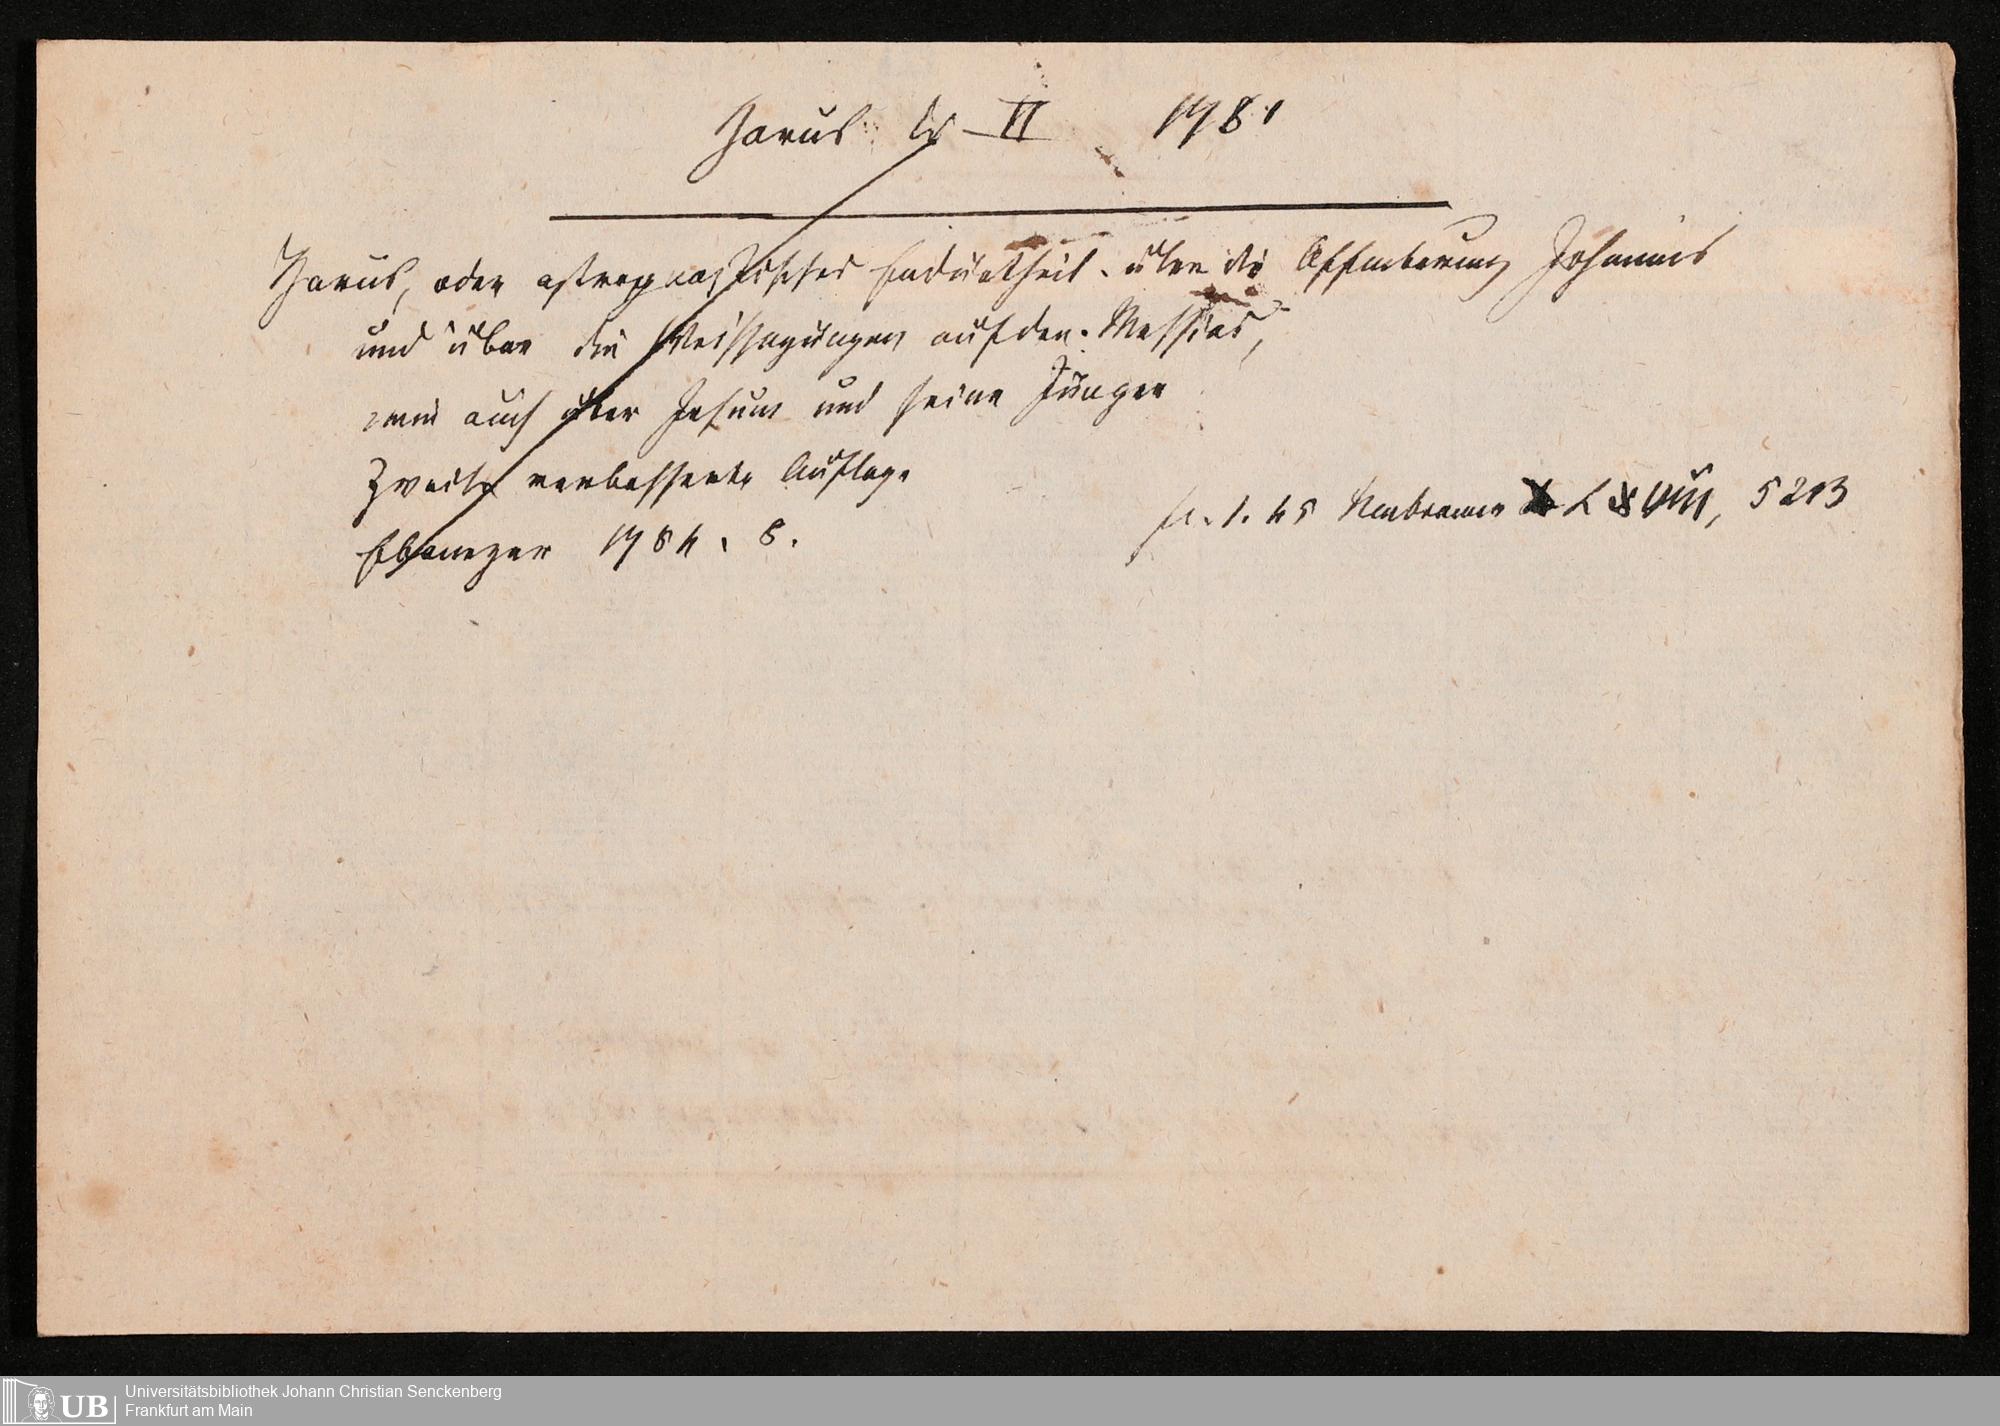 Horus II 1781
Horus, oder astrognostisches Endurtheil über die Offenbarung Johannis
und über die Weissagungen auf den Messias,
wie auch über Jesum und seine Jünger
Zweite verbesserte Auflage
Ebenezer 1784. 8.
1. 45 LXVIII, 5213
UB Universitätsbibliothek Johann Christian Senckenberg
Frankfurt am Main